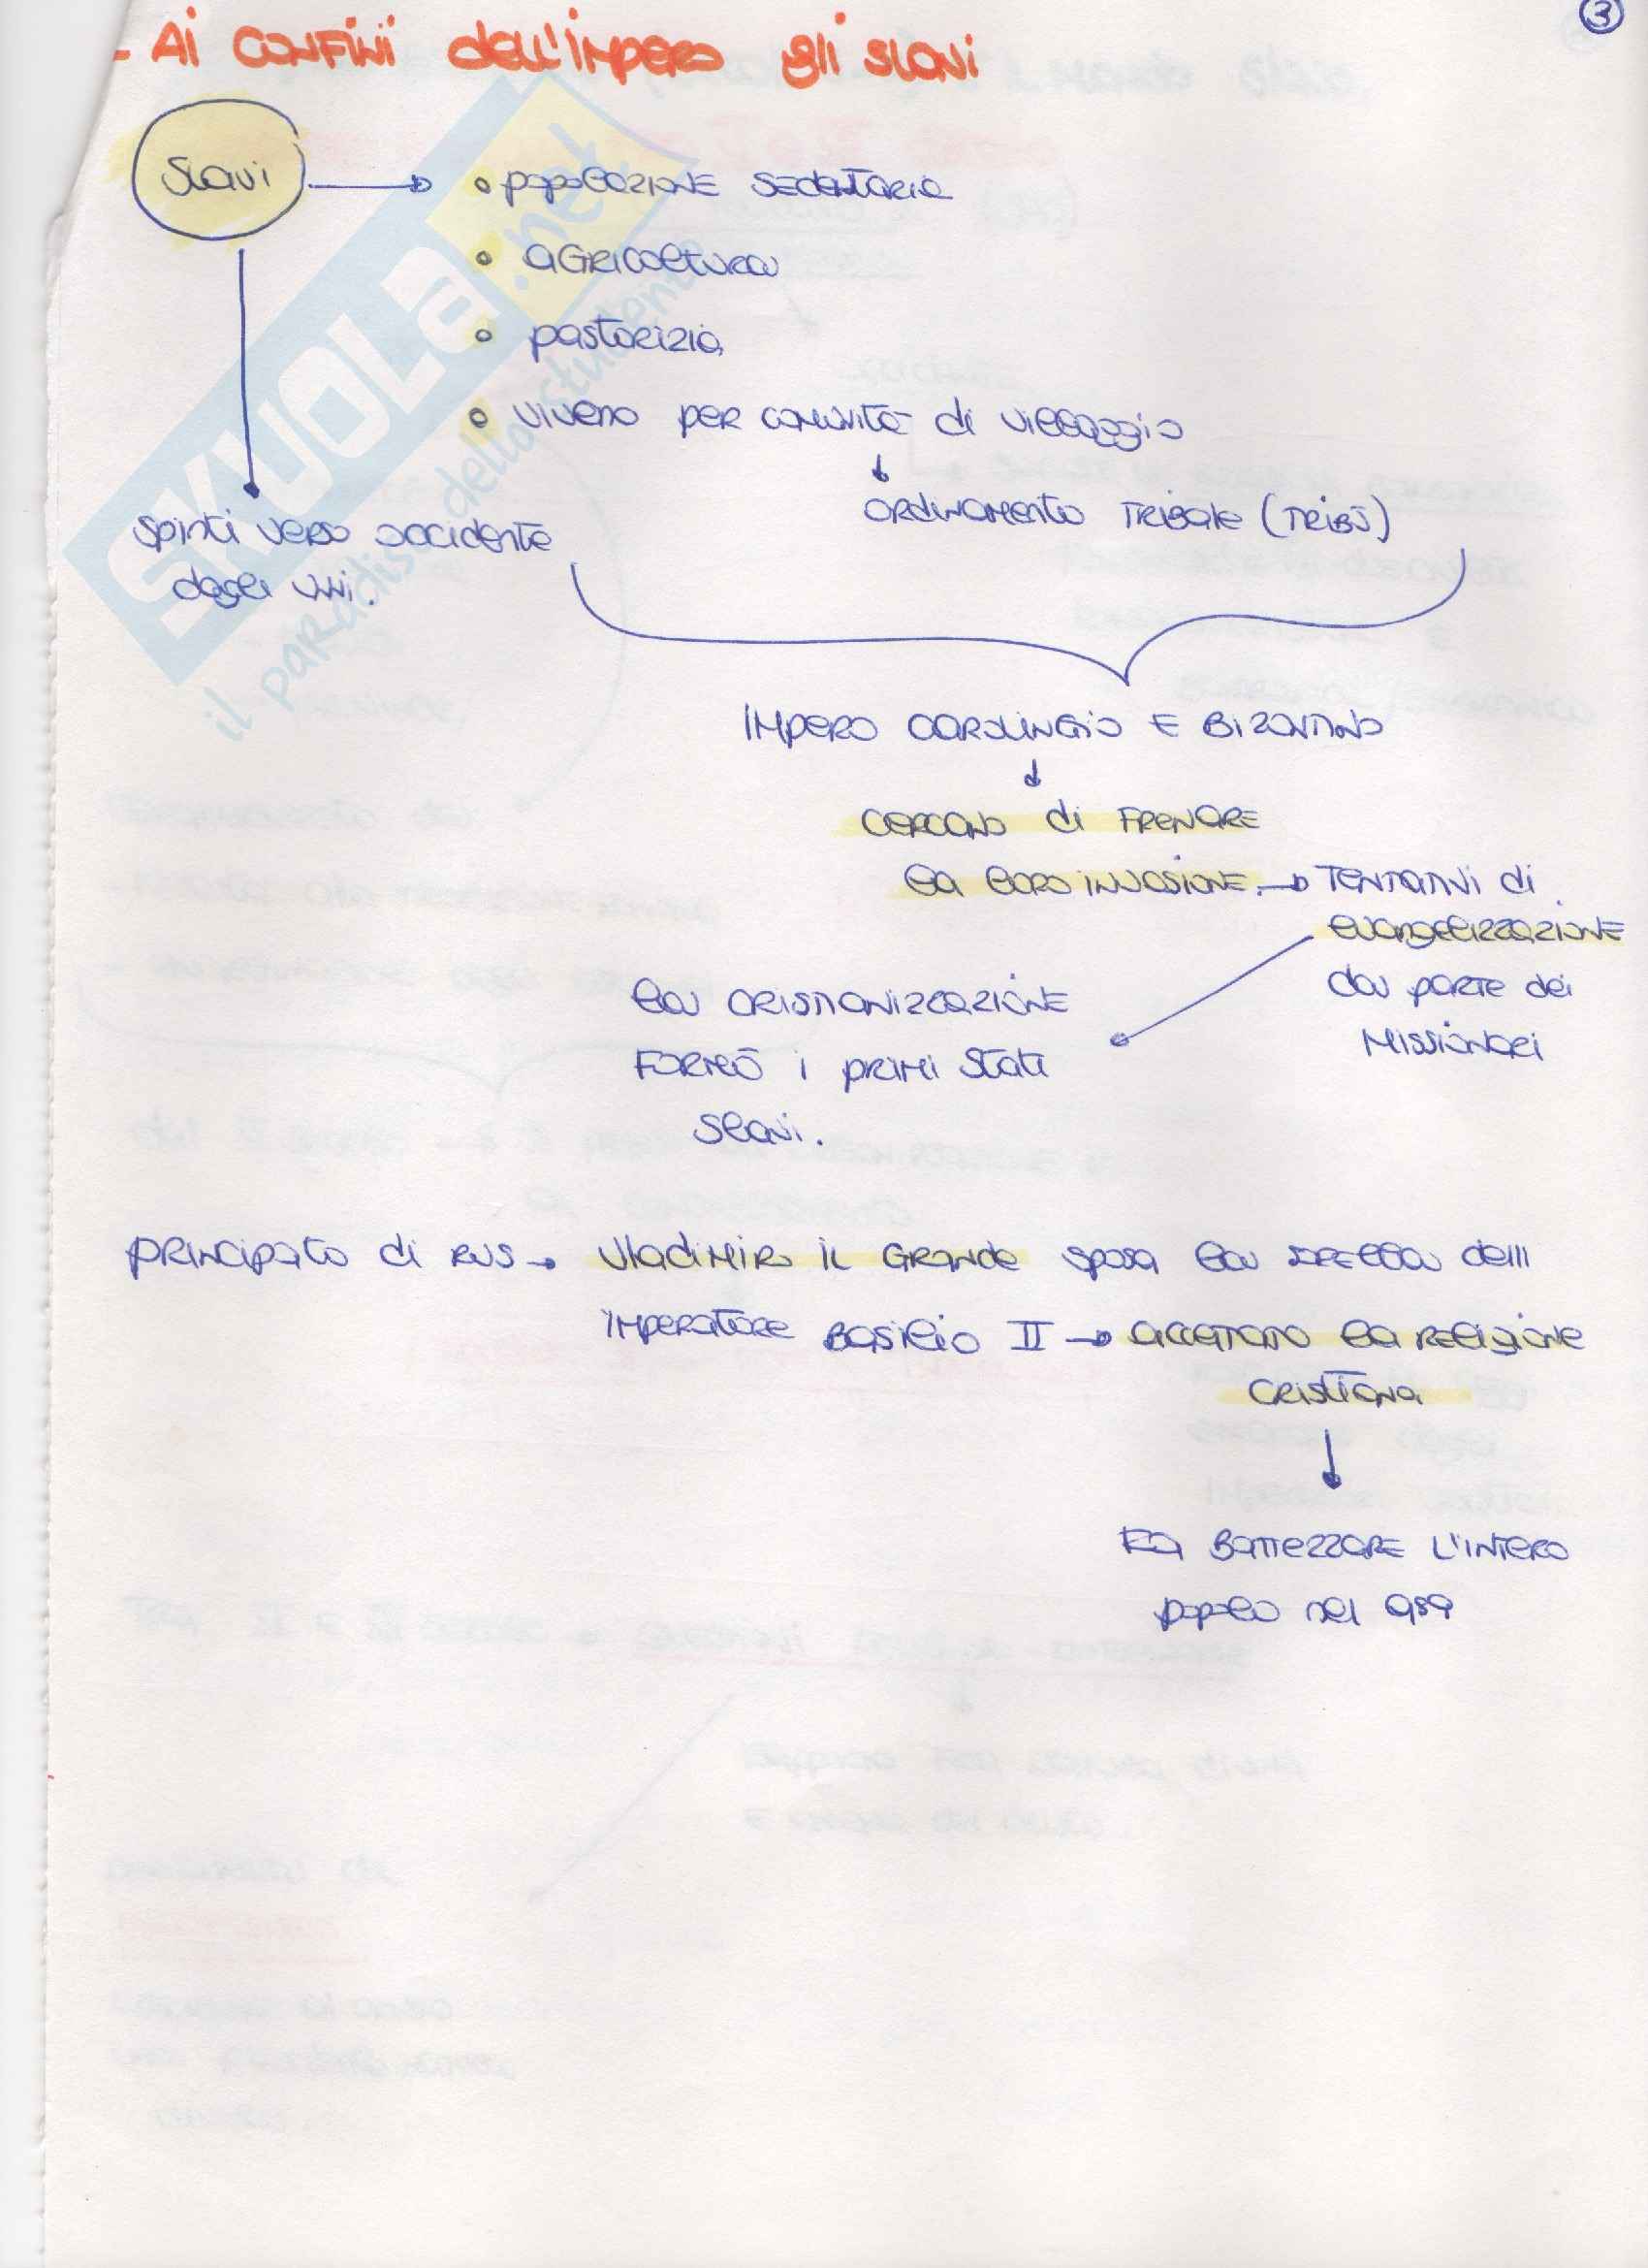 3
- Ai CONFiNi dell'iMPERO gli slavi
Slavi
popolazione sedentaria
agricoltura
pastorizia
vivevano per comunità di villaggio
ordinamento tribale (tribù)
spinti verso occidente
dagli Unni.
IMPERO CAROLINGIO E BIZANTINO
CERCANO di FRENARE
la loro invasione. → TENTATIVI di
evangelizzazione
da parte dei
Missionari
la cristianizzazione
FORMÒ i primi stati
slavi.
principato di RUS → Vladimiro il Grande sposa la sorella dell'
imperatore Basilio II → accettano la religione
cristiana
FA BATTEZZARE L'INTERO
popolo nel 989
SKUOLA.net
il paradiso dello studente